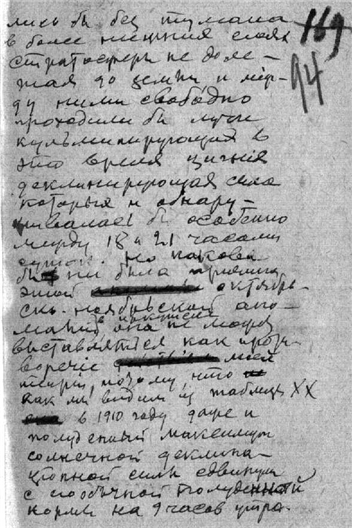 лись бы без тумана 169
в более нижния слоях 94
стратосферы не дохо-
дая до земли и меж-
ду ними свободно
проходили бы лучи
кульминирующая в
это время
деклинирующая сила
которыя и обнару-
бы особенно
между 18 и 21 часами
суток. Но какова
бы ни была причина
этой октябрь-
ско-ноябрьской ано-
малии она не может
в
выставляться как проти-
воречие моей
теории, потому, что
как мы видим из таблицы XX
в 1910 году даже и
полуденный максимум
солнечной деклина-
ционной силы сдвинут
с необычной полуденной
нормы на 9 часов утра.